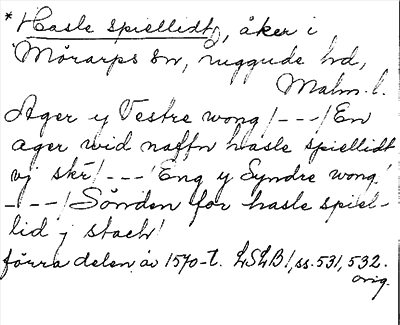 * Hasle spiellidt, åker i
Mörarps sn, Luggude hd,
Malm. l.
Ager y Vestre wong /---/ En
ager wid naffn hasle spiellidt
vj skr /---/ Eng y Syndre wong /
---/ Sönden for hasle spiel-
lid j stach /
förra delen av 1570-t. LSLB 1, ss. 531, 532.
orig.